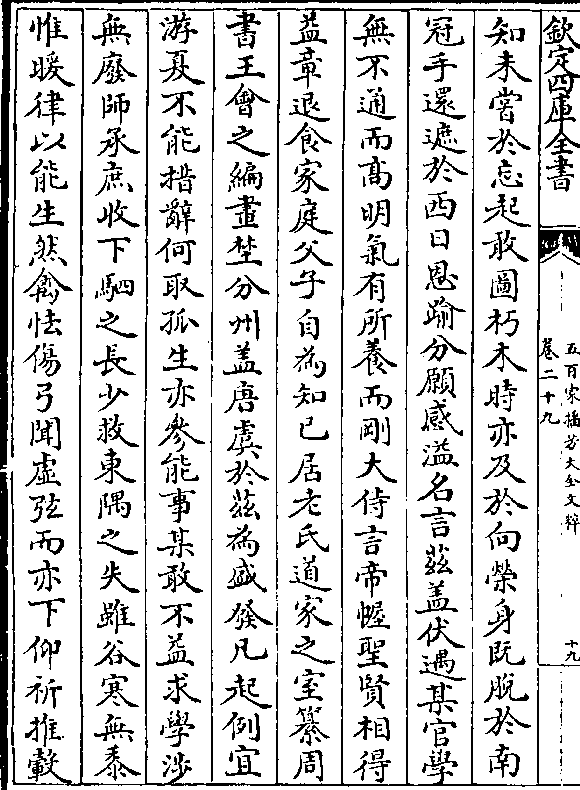 欽定四庫全書
五百家播芳大全文粹
卷二十九
十九
知未嘗於忘起敢圖朽木時亦及於向榮身既脫於南
冠手還遮於西日恩踰分願感溢名言茲蓋伏遇某官學
無不通而髙明氣有所養而剛大侍言帝幄聖賢相得
益章退食家庭父子自為知已居老氏道家之室纂周
書王會之編畫埜分州蓋唐虞於茲為盛發凡起例宜
游夏不能措辭何取孤生亦參能事某敢不益求學涉
無廢師承庶收下駟之長少救東隅之失雖谷寒無黍
惟暖律以能生然禽怯傷弓聞虛弦而亦下仰祈推轂